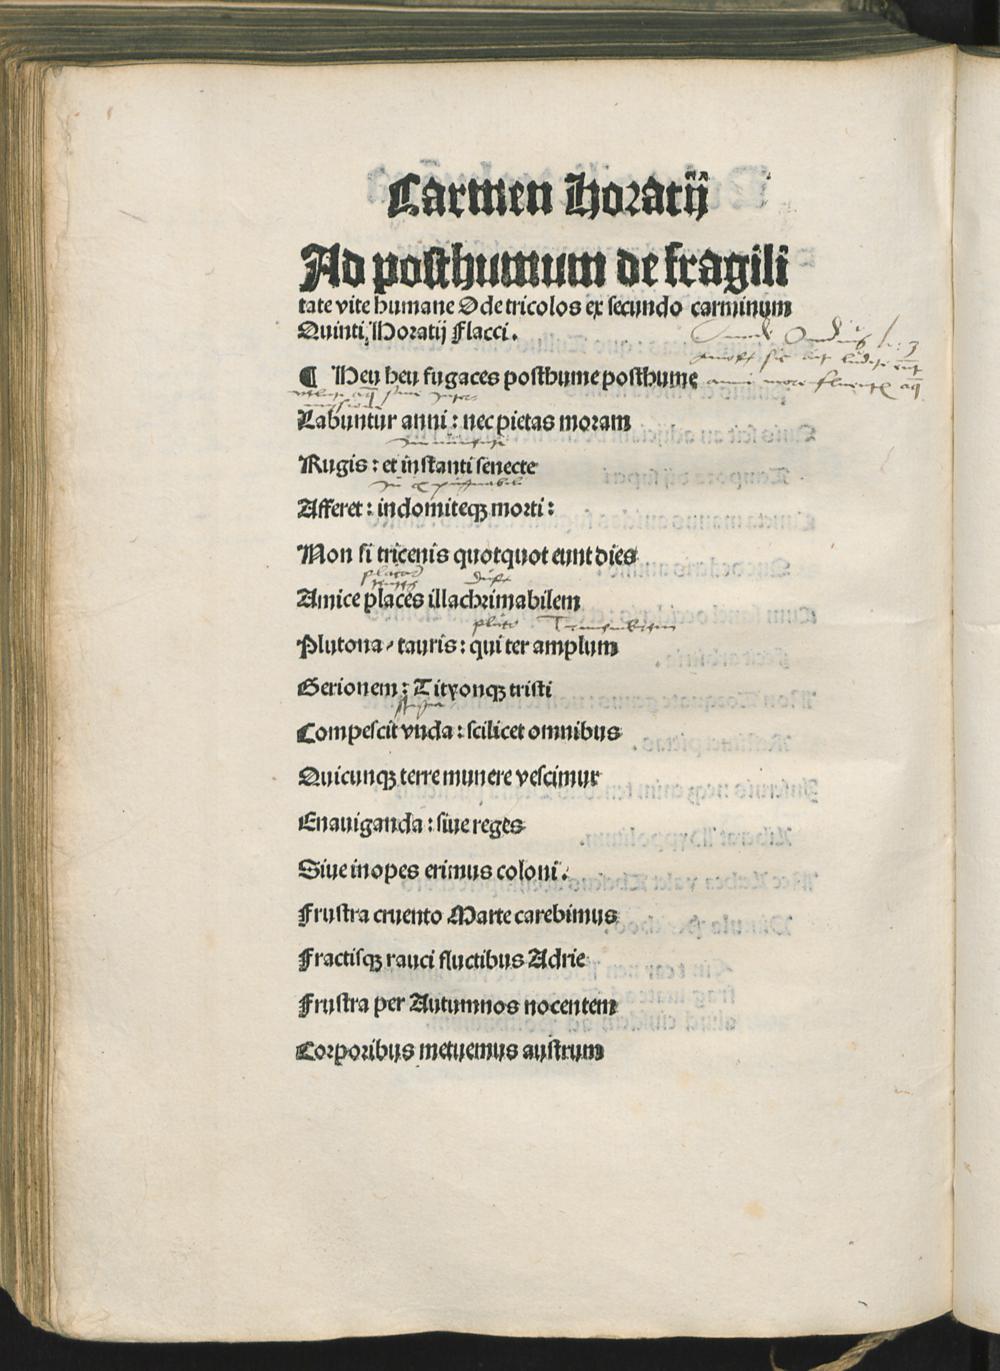 Carmen Horatij
Ad posthumum de fragili
tate vite humane Ode tricolos ex secundo carminum
Quinti Horatij Flacci.
¶ Heu heu fugaces posthume posthume
Labuntur anni: nec pietas moram
Rugis: et instanti senecte
Afferet: indomiteqꝫ morti:
Non si tricenis quotquot eunt dies
Amice places illachrimabilem
Plutona / tauris: qui ter amplum
Gerionem: Tityonqꝫ tristi
Compescit vnda: scilicet omnibus
Quicunqꝫ terre munere vescimur
Enauiganda: siue reges
Siue inopes erimus coloni.
Frustra cruento Marte carebimus
Fractisqꝫ rauci fluctibus Adrie
Frustra per Autumnos nocentem
Corporibus metuemus austrum